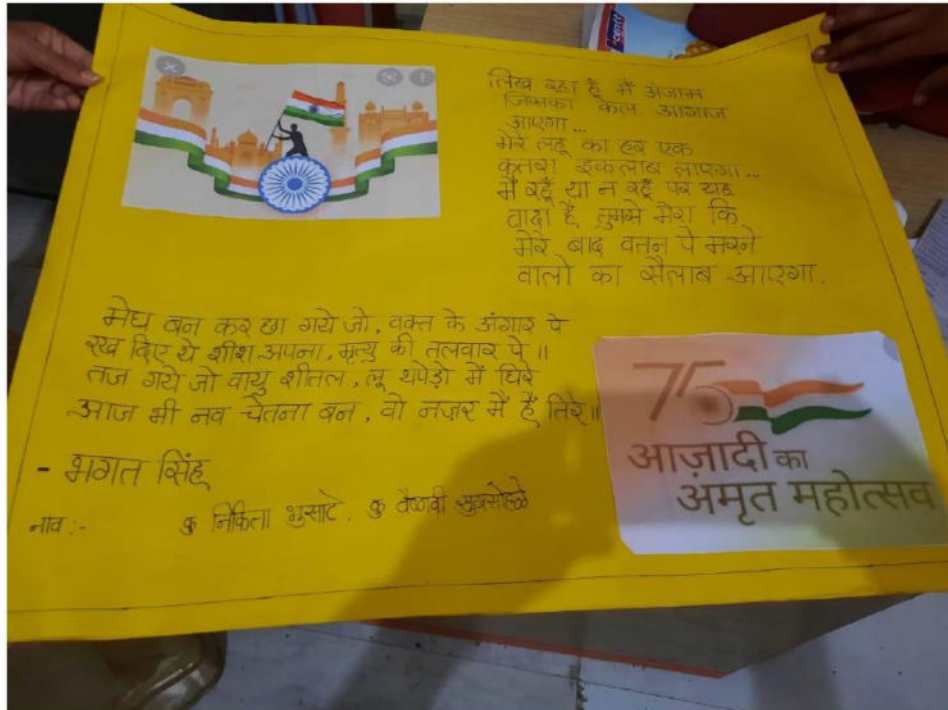 लिख रहा हूँ मैं अंजाम
जिसका कल आगाज
आएगा...
मेरे लहू का हर एक
कतरा इकलाब लाएगा...
मैं रहूँ या न रहूँ पर यह
वादा है तुमसे मेरा कि
मेरे बाद वतन पे मरने
वालो का सैलाब आएगा.
मेघ बन कर छा गये जो, वक्त के अंगार पे
रख दिए थे शीश अपना, मृत्यु की तलवार पे ॥
तज गये जो वायु शीतल, लू थपेड़ो में घिरे
आज भी नव चेतना बन, वो नज़र में हैं तिरे ॥
- भगत सिंह
नाव :- कु निकिता भुसाटे. कु वैष्णवी
75
आज़ादी का
अमृत महोत्सव